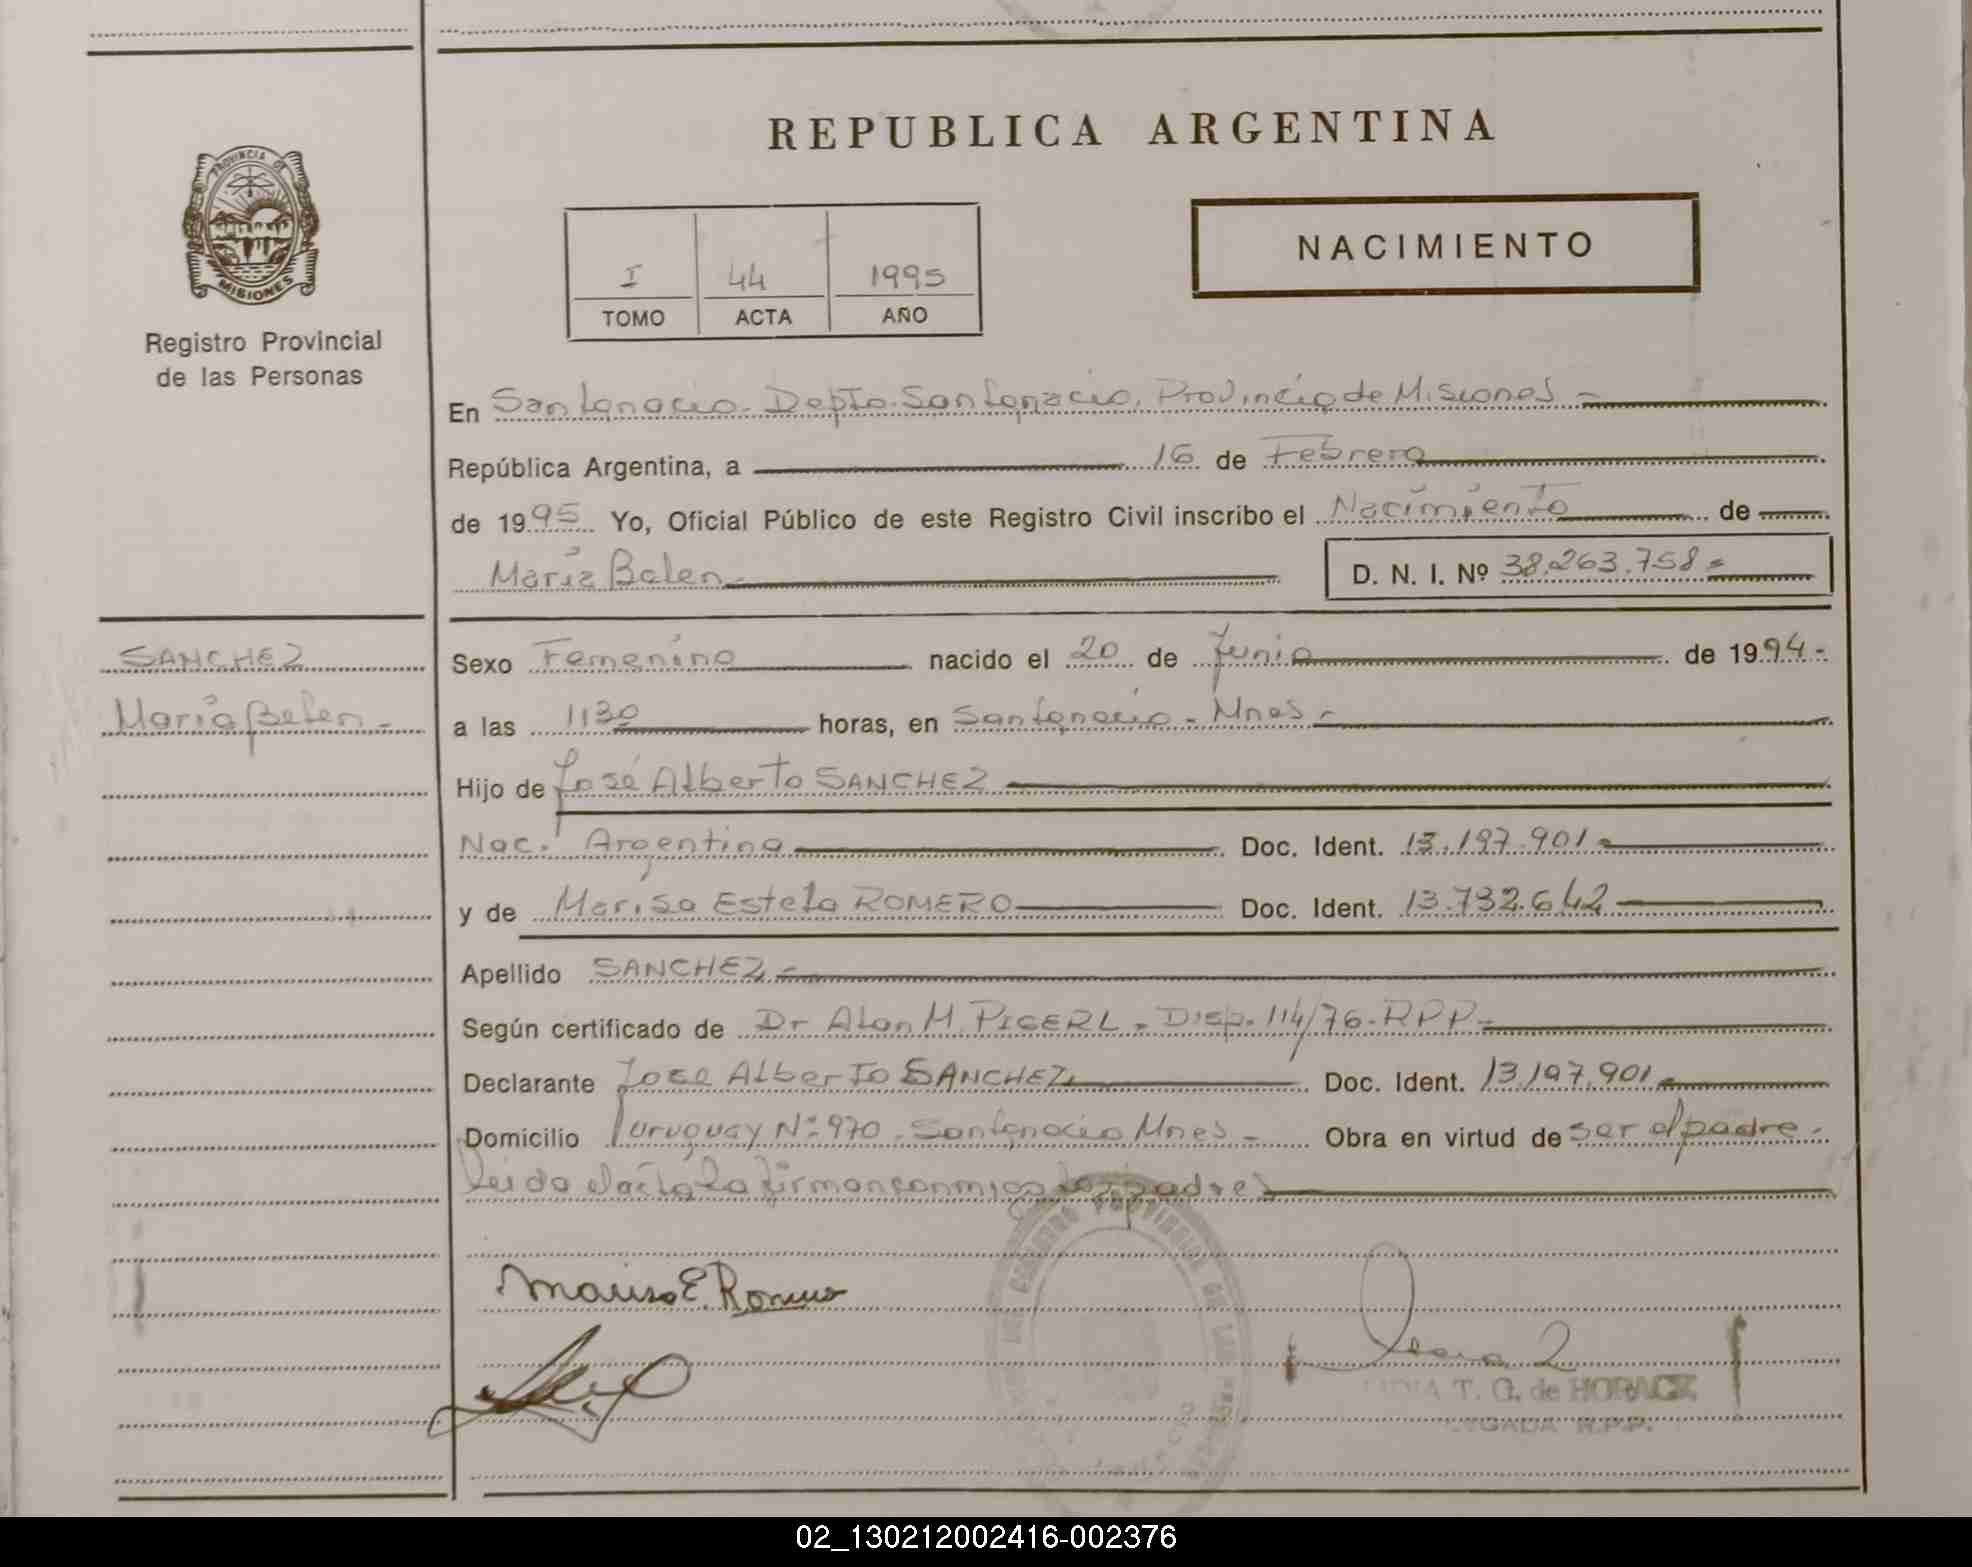 REPUBLICA ARGENTINA
PROVINCIA DE
MISIONES
Registro Provincial
de las Personas
NACIMIENTO
I 44 1995
TOMO ACTA AÑO
En San Ignacio. Depto. San Ignacio. Provincia de Misiones
República Argentina, a 16 de Febrero
de 1995 Yo, Oficial Público de este Registro Civil inscribo el Nacimiento de
María Belen D. N. I. Nº 38.263.758
SANCHEZ
María Belen
Sexo Femenino nacido el 20 de Junio de 1994
a las 1130 horas, en San Ignacio - Mnes
Hijo de José Alberto SANCHEZ
Nac. Argentina Doc. Ident. 13.197.901
y de Marisa Estela ROMERO Doc. Ident. 13.732.642
Apellido SANCHEZ
Según certificado de Dr Alan M. PIGERL - Disp. 114/76-RPP
Declarante José Alberto SANCHEZ Doc. Ident. 13.197.901
Domicilio Uruguay Nº 970. San Ignacio Mnes - Obra en virtud de ser el padre.
Leida el acta la firman conmigo los padres
Marisa E. Romero
T. G. de HORACK
R.P.P.
02_130212002416-002376